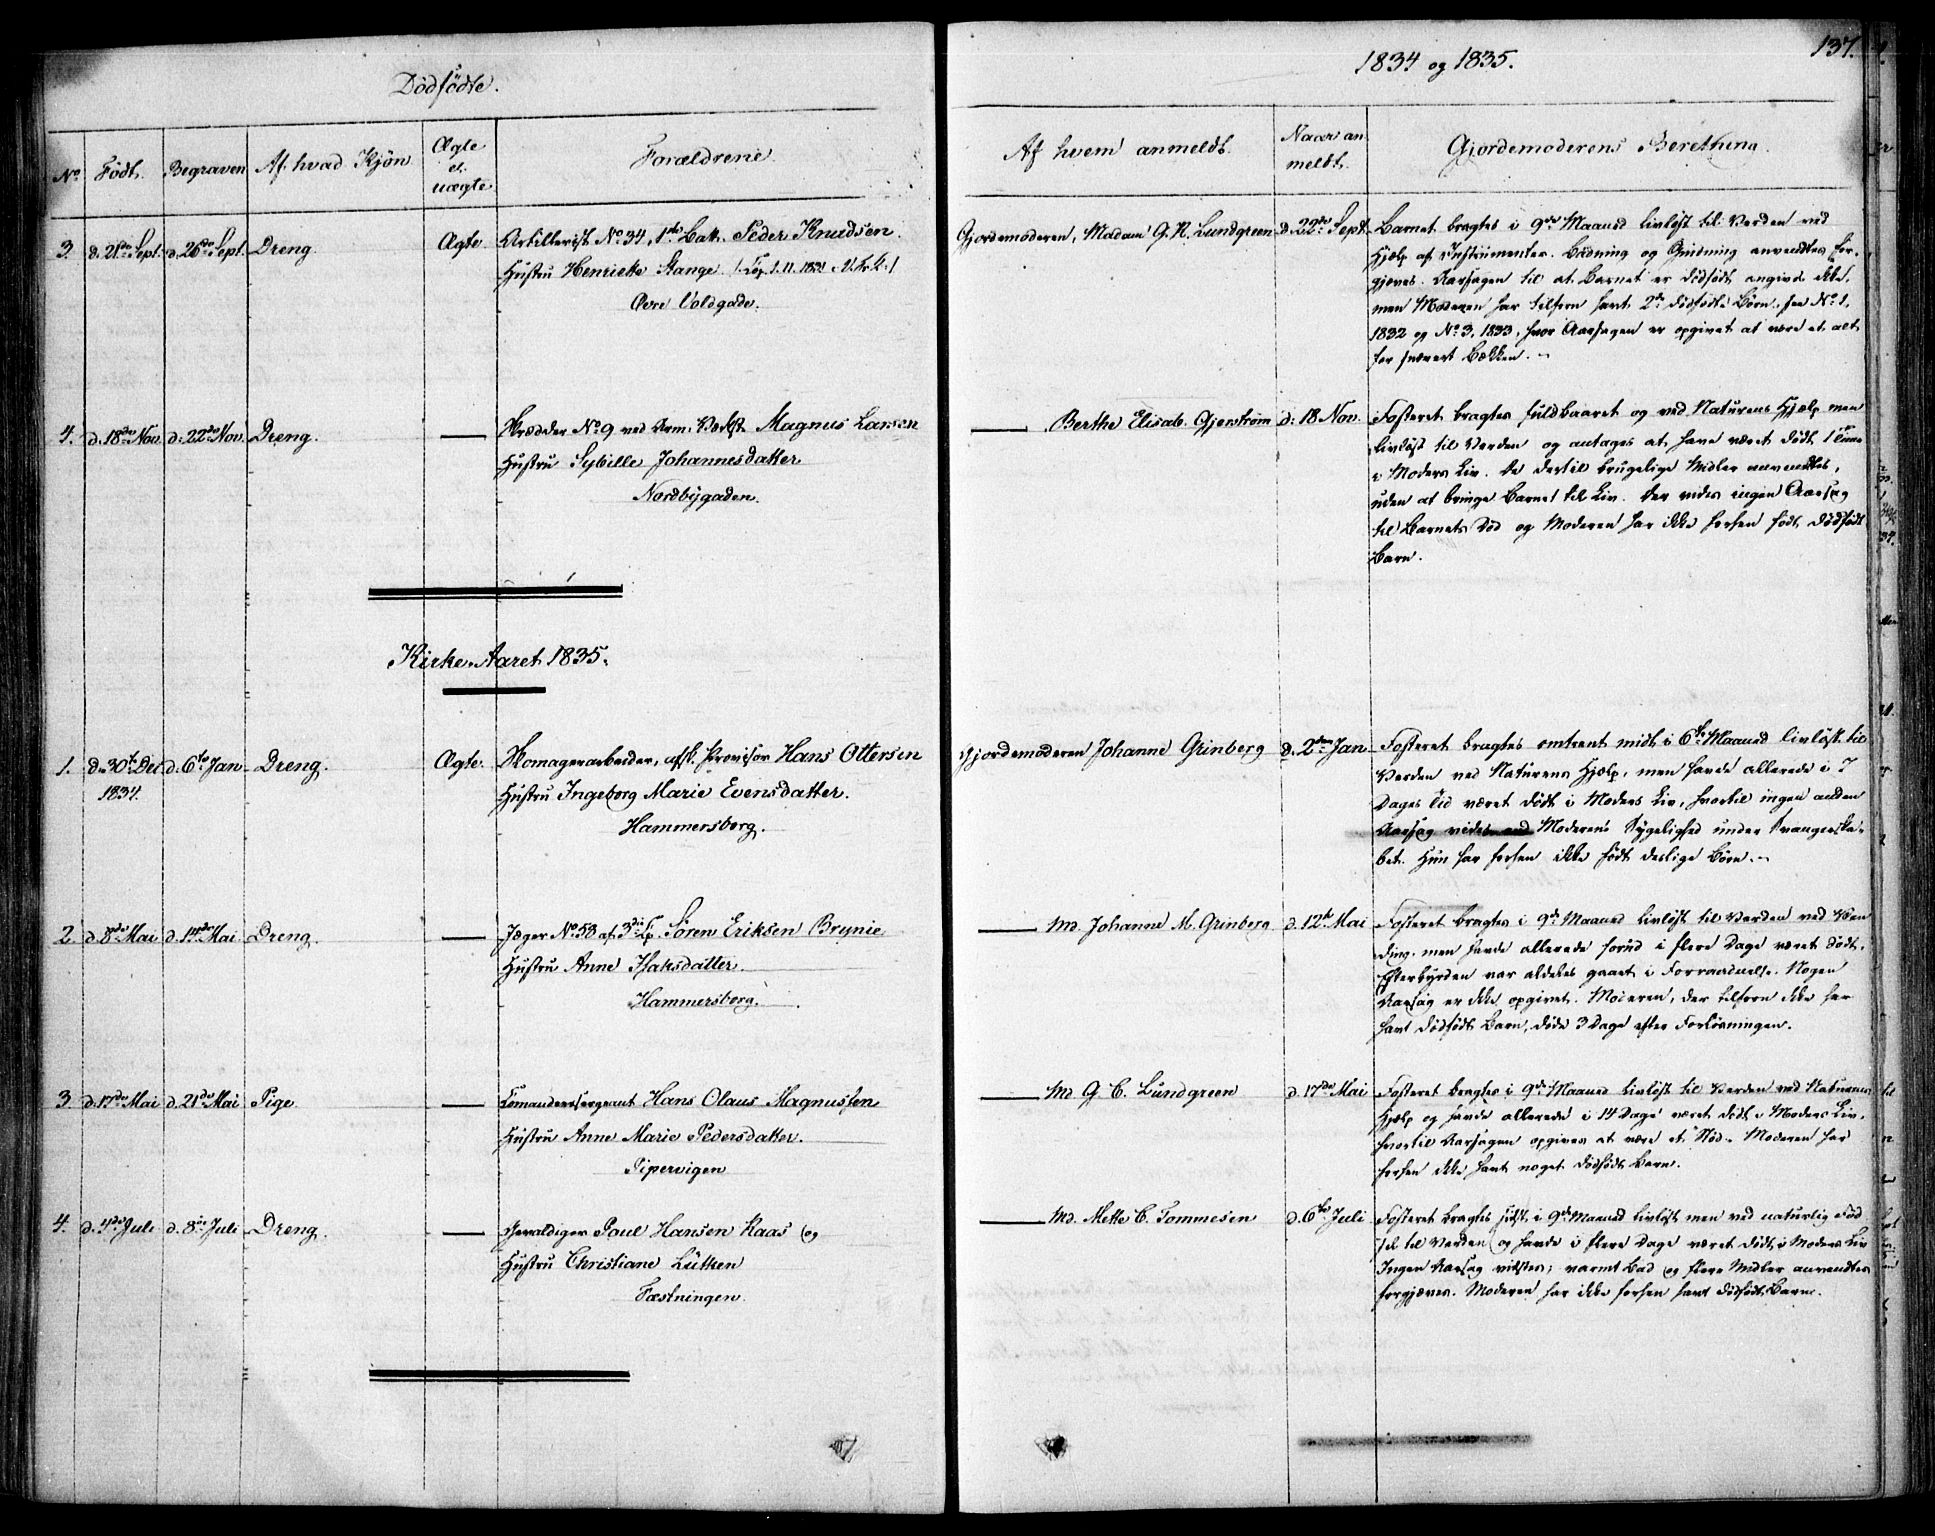 Dødfødte.
1834 og 1835.
137.
No
Født.
Begraven
Af hvad Kjøn
Ægte
el.
uægte
Forældrene.
Af hvem anmeldt.
Naar an-
meldt.
Gjordemoderens Beretning.
3. d. 21de Sept. d. 26de Sept. Dreng. Ægte Artillerist No 34, 1ste Batt. Peder Knudsen.
Hustru Henriette Stange
Øvre Voldgade.
Gjordemoderen, Madam G. K. Lundgreen d. 22de Sept.
Barnet bragtes i 9de Maaned livløst til Verden ved
Hjelp af Instrumenter. Badning og Gnidning anvendtes for-
gjeves. Aarsagen til at Barnet er dødfødt angives ikke,
men Moderen har tilforn havt 2de dødfødte Børn, see No 1,
1832 og No 3, 1833, hvor Aarsagen er opgivet at være et alt
for snevert Bækken.
4. d. 18de Nov. d. 22de Nov. Dreng. — Skredder No 9 ved Arm. Værkst. Magnus Larsen
Hustru Sybille Johannesdatter
Nordbygaden.
— Berthe Elisab. Gjerstrøm d. 18 Nov.
Fosteret bragtes fuldbaaret og ved Naturens Hjelp men
livløst til Verden og antages at have været dødt 1
i Moders Liv. De dertil brugelige Midler anvendtes,
uden at bringe Barnet til Liv. Der vides ingen Aarsag
til Barnets Død og Moderen har ikke forhen født dødfødt
Barn.
Kirke-Aaret 1835.
1. d. 30te Dec. d. 6te Jan Dreng. Ægte. Skomagerarbeider, afsk. Provisor Hans Ottersen
1834.
Hustru Ingeborg Marie Evensdatter.
Hammersborg.
Gjordemoderen Johanne Grinberg d. 2den Jan
Fosteret bragtes omtrent midt i 6te Maaned livløst til
Verden ved Naturens Hjelp, men havde allerede i 7
Dages Tid været dødt i Moders Liv, hvortil ingen anden
Aarsag vides end Moderens Sygelighed under Svangerska-
bet. Hun har forhen ikke født deslige Børn.
2 d. 8de Mai d. 14de Mai Dreng. — Jæger No 58 af 3die Cp. Søren Eriksen Brynie
Hustru Anne Isaksdatter.
Hammersborg.
— Md. Johanne M. Grinberg d. 12te Mai
Fosteret bragtes i 9de Maaned livløst til Verden ved Ven
ding, men havde allerede forud i flere Dage været dødt.
Efterbyrden var aldeles gaaet i Forraadnelse. Nogen
Aarsag er ikke opgivet. Moderen, der tilforn ikke har
havt dødfødt Barn, døde 3 Dage efter Forløsningen.
3 d. 17de Mai d. 21de Mai Pige. — Commandeersergeant Hans Olaus Magnussen
Hustru Anne Marie Pedersdatter.
Pipervigen
— Md G. C. Lundgreen d. 17de Mai
Fosteret bragtes i 9de Maaned livløst til Verden ved Naturens
Hjelp og havde allerede i 14 Dage været dødt i Moders Liv,
hvortil Aarsagen opgives at være et Stød. Moderen har
forhen ikke havt noget dødfødt Barn.
4. d. 4de Juli d. 8de Juli Dreng. — Gevaldiger Paul Hansen Kaas og
Hustru Christiane Lütken
Fæstningen.
— Md. Mette C. Tommesen d. 6te Juli
Fosteret bragtes sidst i 9de Maaned livløst men ved naturlig Fød
sel til Verden og havde i flere Dage været dødt i Moders Liv
Ingen Aarsag vidstes; varmt Bad og flere Midler anvendtes
forgjæves. Moderen har ikke forhen havt dødfødt Barn.